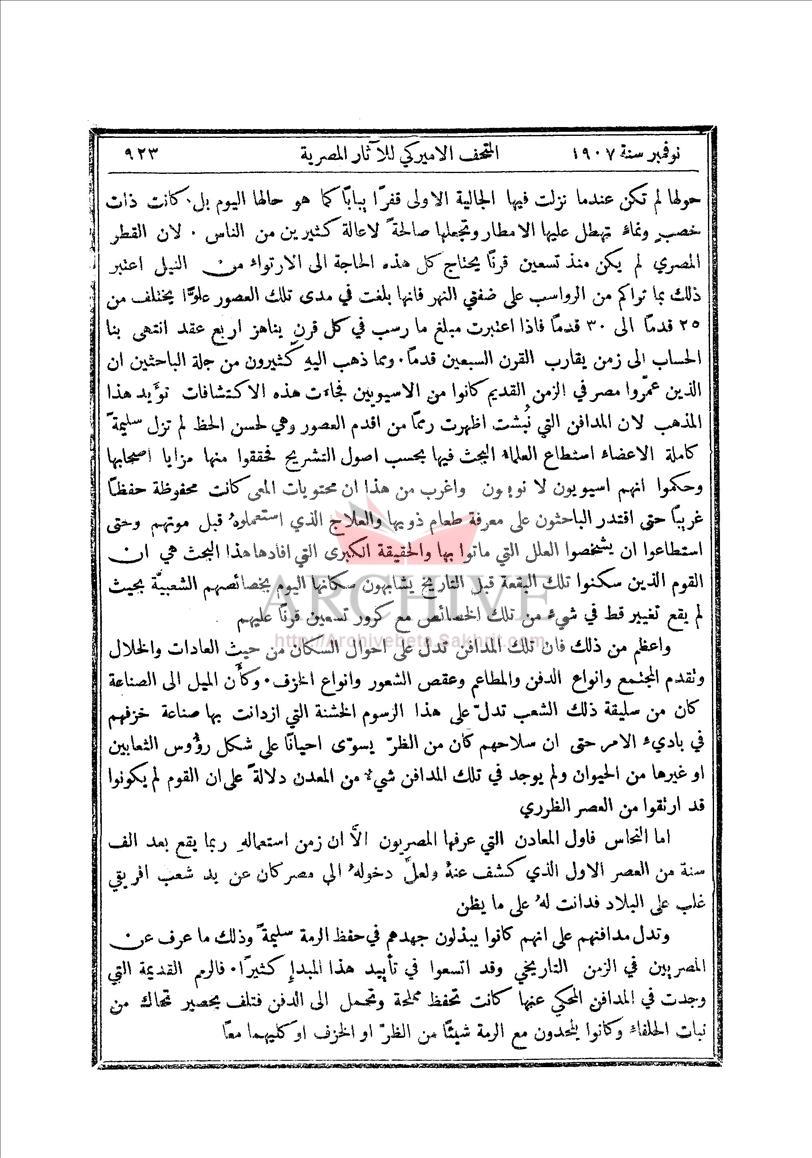 نوفمبر سنة ١٩٠٧ المتحف الاميركي للآثار المصرية ٩٢٣
حولها لم تكن عندما نزلت فيها الجالية الاولى قفرًا يبابًا كما هو حالها اليوم بل كانت ذات
خصبٍ ونماءٍ تهطل عليها الامطار وتجعلها صالحةً لاعالة كثيرين من الناس . لان القطر
المصري لم يكن منذ تسعين قرنًا يحتاج كل هذه الحاجة الى الارتواء من النيل اعتبر
ذلك بما تراكم من الرواسب على ضفتي النهر فانها بلغت في مدى تلك العصور علوًّا يختلف من
٢٥ قدمًا الى ٣٠ قدمًا فاذا اعتبرت مبلغ ما رسب في كل قرنٍ يناهز اربع عقد انتهى بنا
الحساب الى زمن يقارب القرن السبعين قدمًا . ومما ذهب اليهِ كثيرون من جلة الباحثين ان
الذين عمّروا مصر في الزمن القديم كانوا من الاسيويين فجاءت هذه الاكتشافات تؤيد هذا
المذهب لان المدافن التي نُبشت اظهرت رممًا من اقدم العصور وهي لحسن الحظ لم تزل سليمةً
كاملة الاعضاء استطاع العلماء البحث فيها بحسب اصول التشريح فحققوا منها مزايا اصحابها
وحكموا انهم اسيويون لا نوبيون واغرب من هذا ان محتويات المعى كانت محفوظة حفظًا
غريبًا حتى اقتدر الباحثون على معرفة طعام ذويها والعلاج الذي استعملوهُ قبل موتهم وحتى
استطاعوا ان يشخصوا العلل التي ماتوا بها والحقيقة الكبرى التي افادها هذا البحث هي ان
القوم الذين سكنوا تلك البقعة قبل التاريخ يشابهون سكانها اليوم بخصائصهم الشعبيَّة بحيث
لم يقع تغيير قط في شيءٍ من تلك الخصائص مع كرور تسعين قرنًا عليهم
واعظم من ذلك فان تلك المدافن تدل على احوال السكان من حيث العادات والخلال
وتقدم المجتمع وانواع الدفن والمطاعم وعقص الشعور وانواع الخزف . وكأن الميل الى الصناعة
كان من سليقة ذلك الشعب تدلّ على هذا الرسوم الخشنة التي ازدانت بها صناعة خزفهم
في باديء الامر حتى ان سلاحهم كان من الظرّ يسوّى احيانًا على شكل رؤوس الثعابين
او غيرها من الحيوان ولم يوجد في تلك المدافن شيءٌ من المعدن دلالةً على ان القوم لم يكونوا
قد ارتقوا من العصر الظرري
اما النحاس فاول المعادن التي عرفها المصريون الاَّ ان زمن استعمالهِ ربما يقع بعد الف
سنة من العصر الاول الذي كشف عنهُ ولعلّ دخولهُ الى مصر كان عن يد شعب افريقي
غلب على البلاد فدانت لهُ على ما يظن
وتدل مدافنهم على انهم كانوا يبذلون جهدهم في حفظ الرمة سليمةً وذلك ما عرف عن
المصريين في الزمن التاريخي وقد اتسعوا في تأييد هذا المبدإ كثيرًا . فالرمم القديمة التي
وجدت في المدافن المحكي عنها كانت تحفظ مملحة وتحمل الى الدفن فتلف بحصير تحاك من
نبات الحلفاء وكانوا يلحدون مع الرمة شيئًا من الظرّ او الخزف او كليهما معًا
ARCHIVE
http://Archivebeta.Sakhrit.com